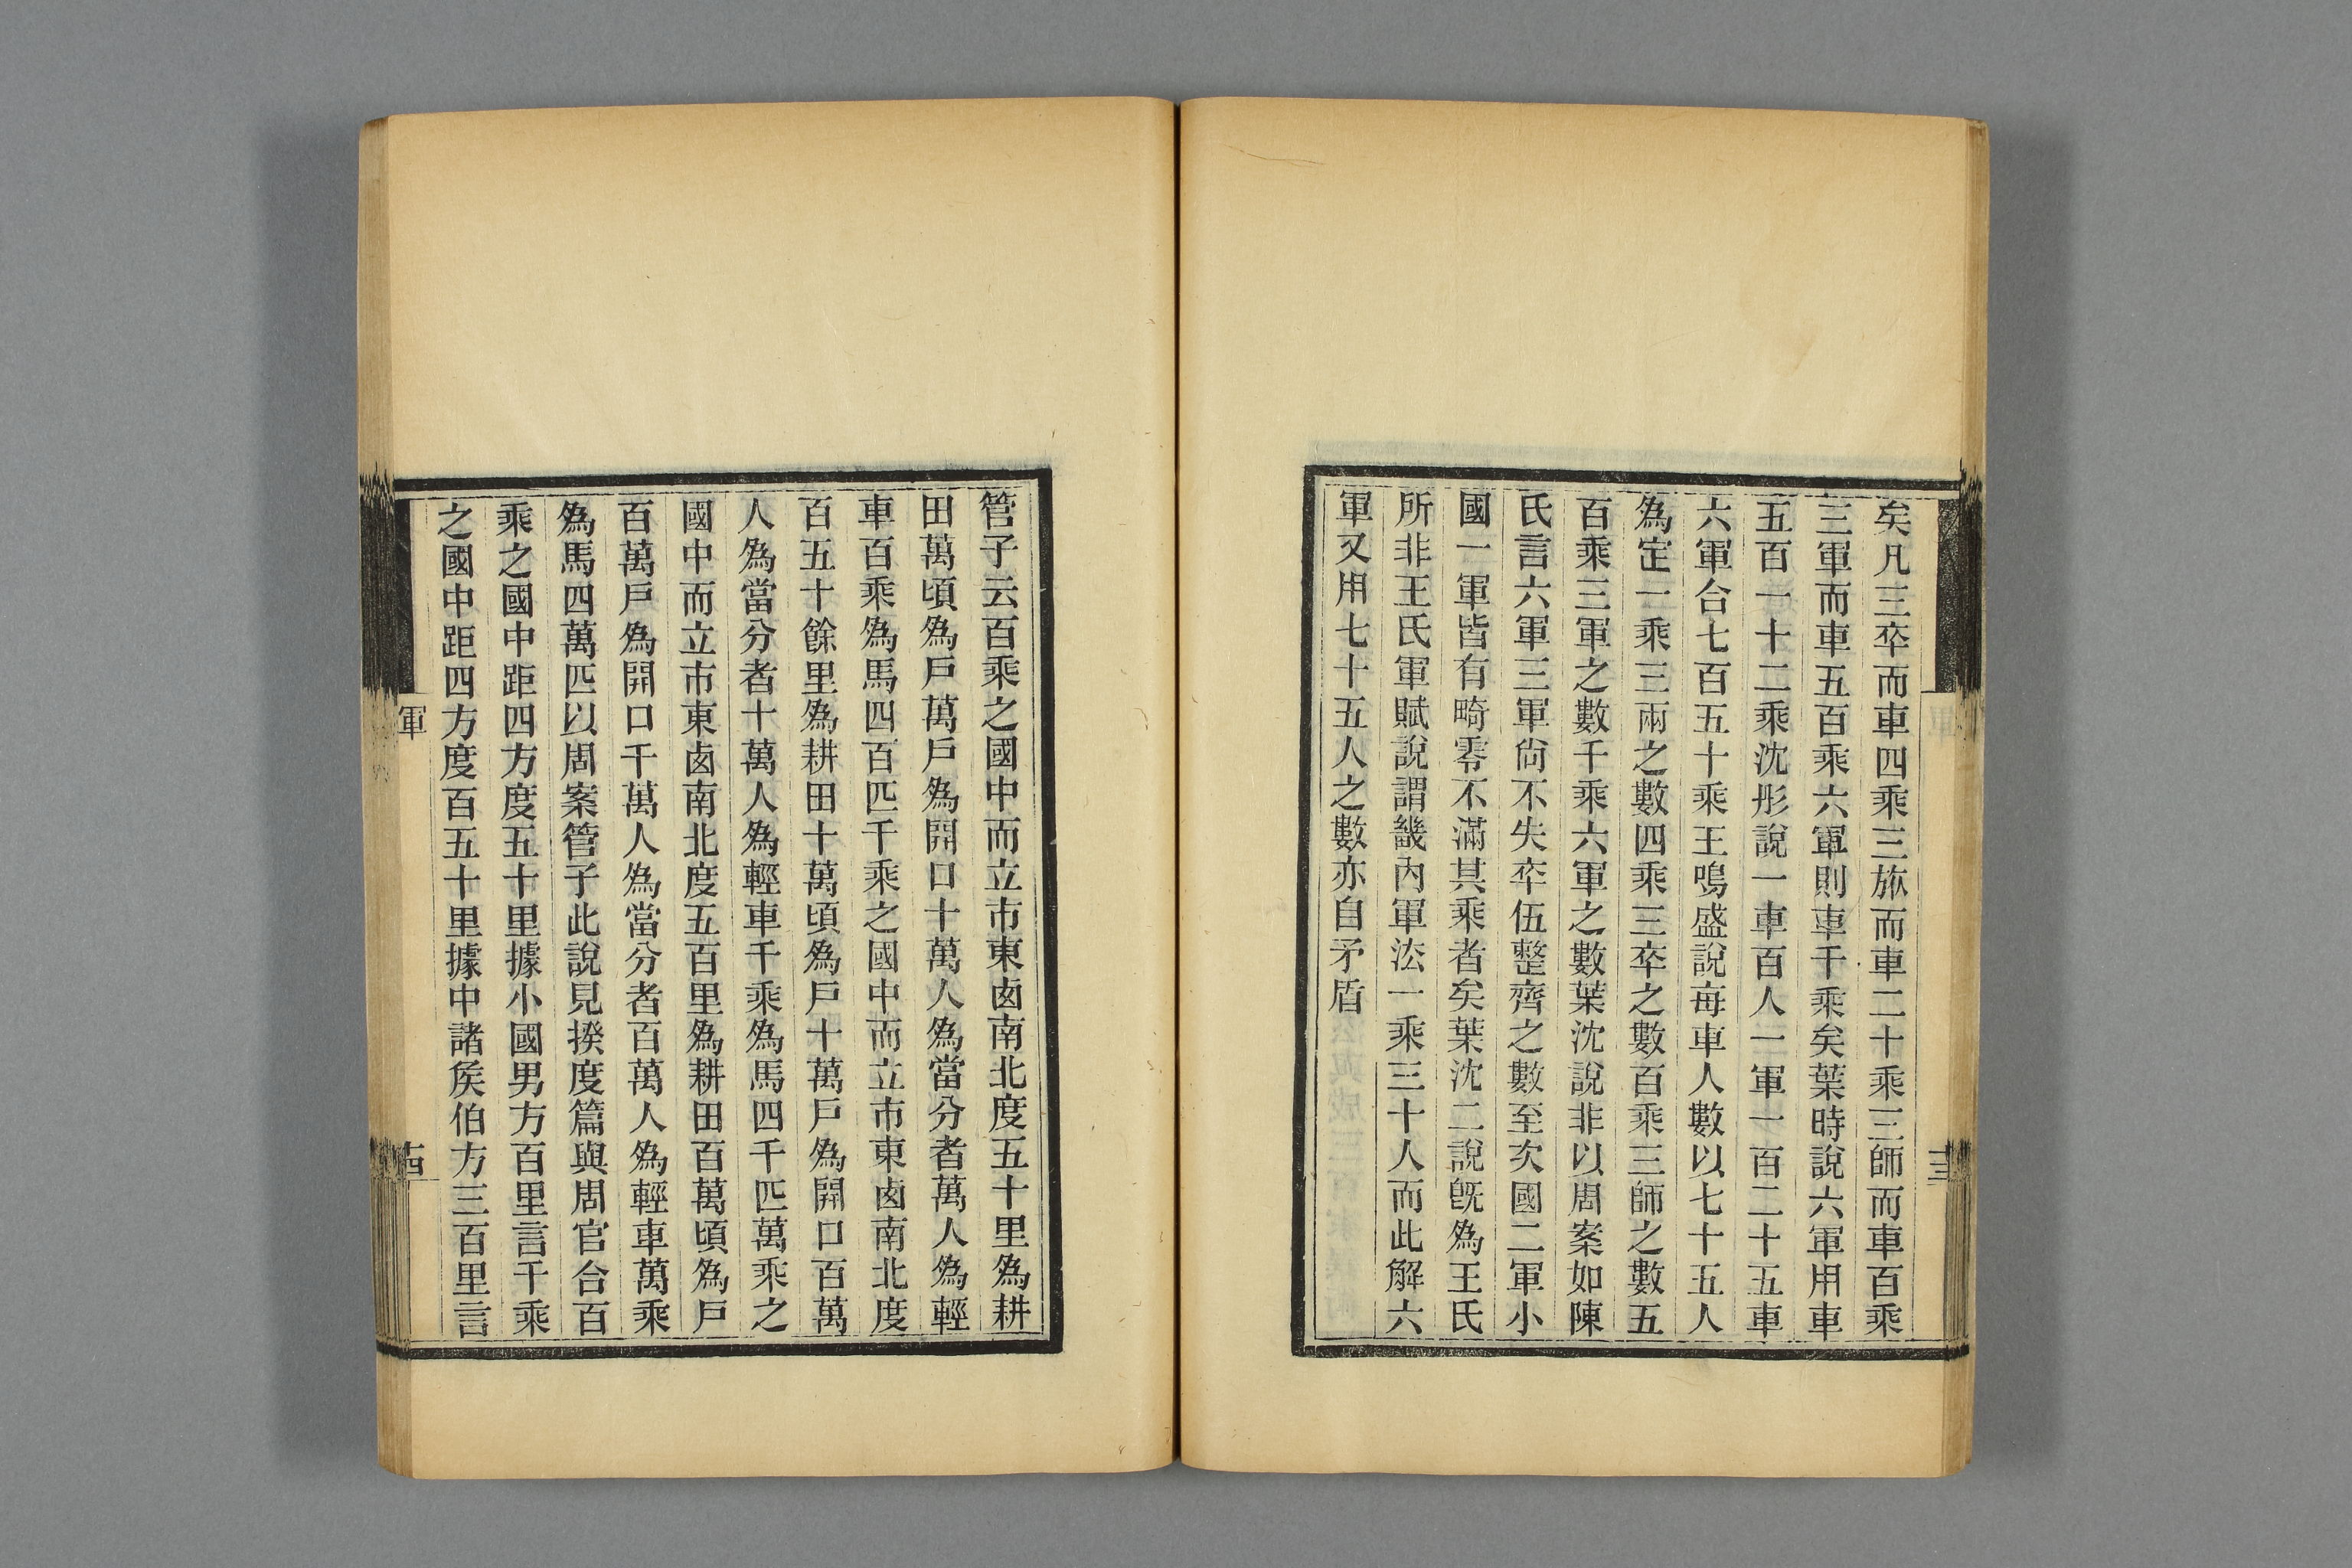 矣凡三卒而車四乘三旅而車二十乘三師而車百乘
三軍而車五百乘六軍則車千乘矣葉時說六軍用車
五百一十二乘沈彤說一車百人一軍一百二十五車
六軍合七百五十乘王鳴盛說每車人數以七十五人
為定一乘三兩之數四乘三卒之數百乘三師之數五
百乘三軍之數千乘六軍之數葉沈說非以周案如陳
氏言六軍三軍尚不失卒伍整齊之數至次國二軍小
國一軍皆有畸零不滿其乘者矣葉沈二說旣為王氏
所非王氏軍賦說謂畿內軍法一乘三十人而此解六
軍又用七十五人之數亦自矛盾
十三
管子云百乘之國中而立市東西南北度五十里為耕
田萬頃為戶萬戶為開口十萬人為當分者萬人為輕
車百乘為馬四百匹千乘之國中而立市東西南北度
百五十餘里為耕田十萬頃為戶十萬戶為開口百萬
人為當分者十萬人為輕車千乘為馬四千匹萬乘之
國中而立市東西南北度五百里為耕田百萬頃為戶
百萬戶為開口千萬人為當分者百萬人為輕車萬乘
為馬四萬匹以周案管子此說見揆度篇與周官合百
乘之國中距四方度五十里據小國男方百里言千乘
之國中距四方度百五十里據中諸矦伯方三百里言
軍
十四